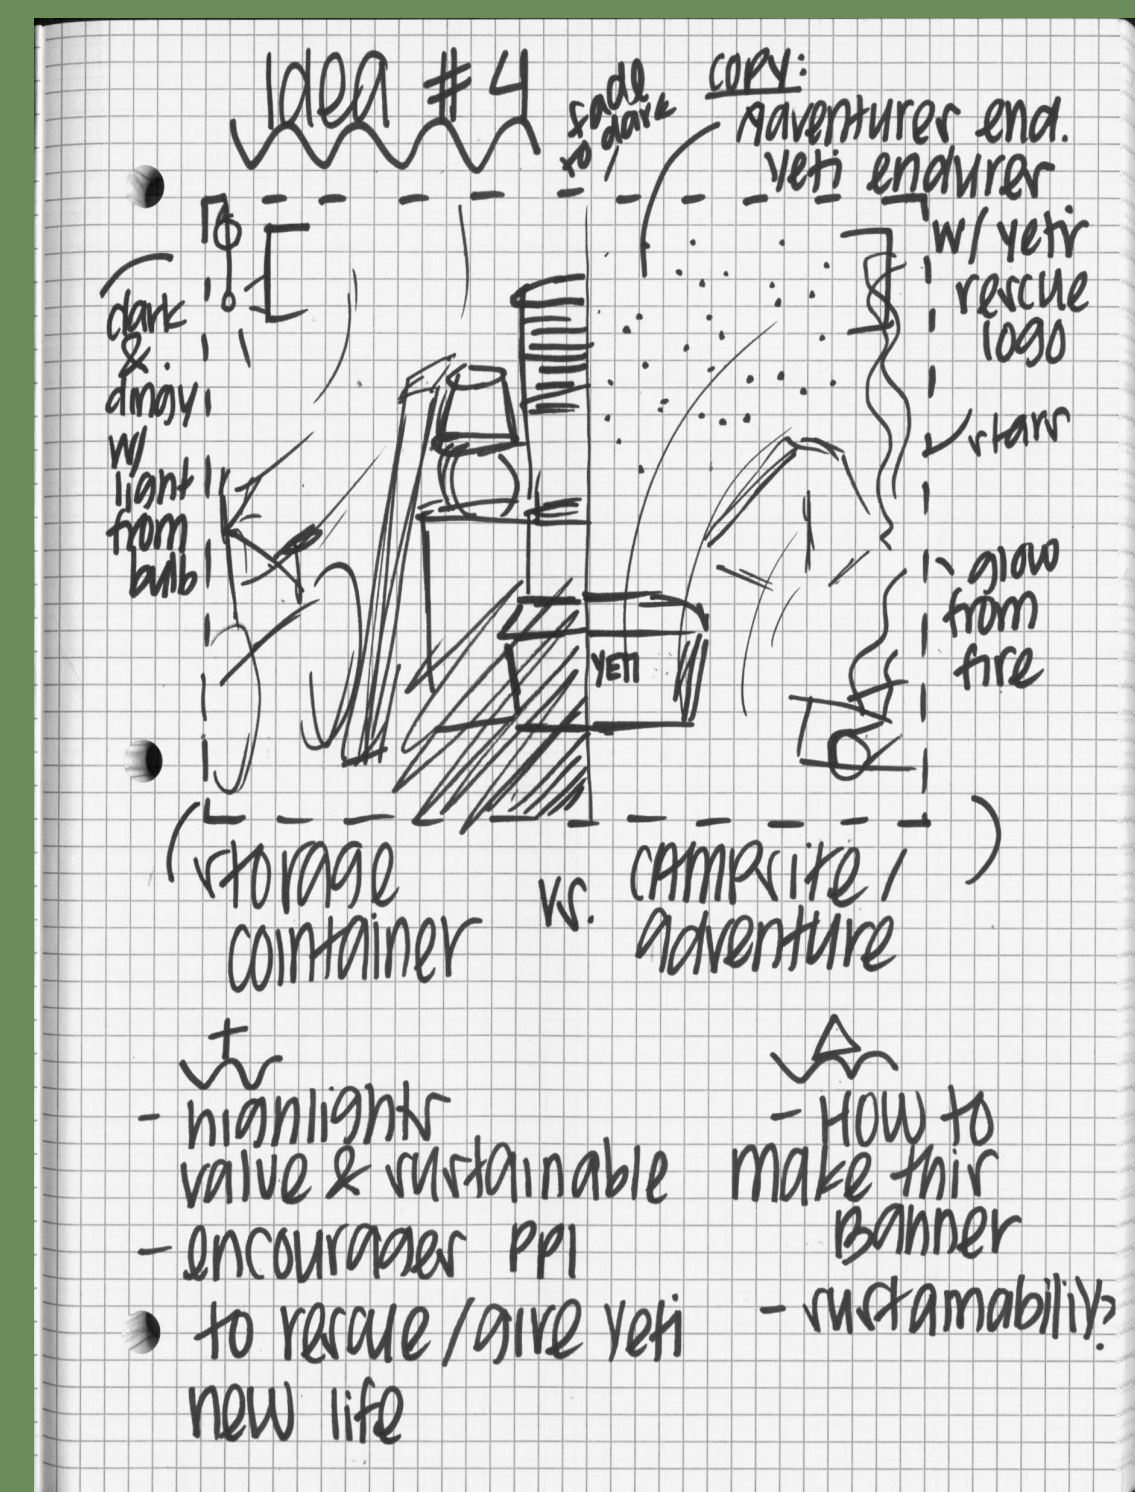 Idea #4
fade
to dark
copy:
Adventurer end.
Yeti endurer
w/ yeti
rescue
logo
dark
&
dingy
w/
light
from
bulb
stars
glow
from
fire
YETI
storage
cointainer
vs.
campsite/
adventure
+
- highlights
value & sustainable
- encourages ppl
to rescue/give yeti
new life
△
- How to
make this
Banner
- sustamabiliy?